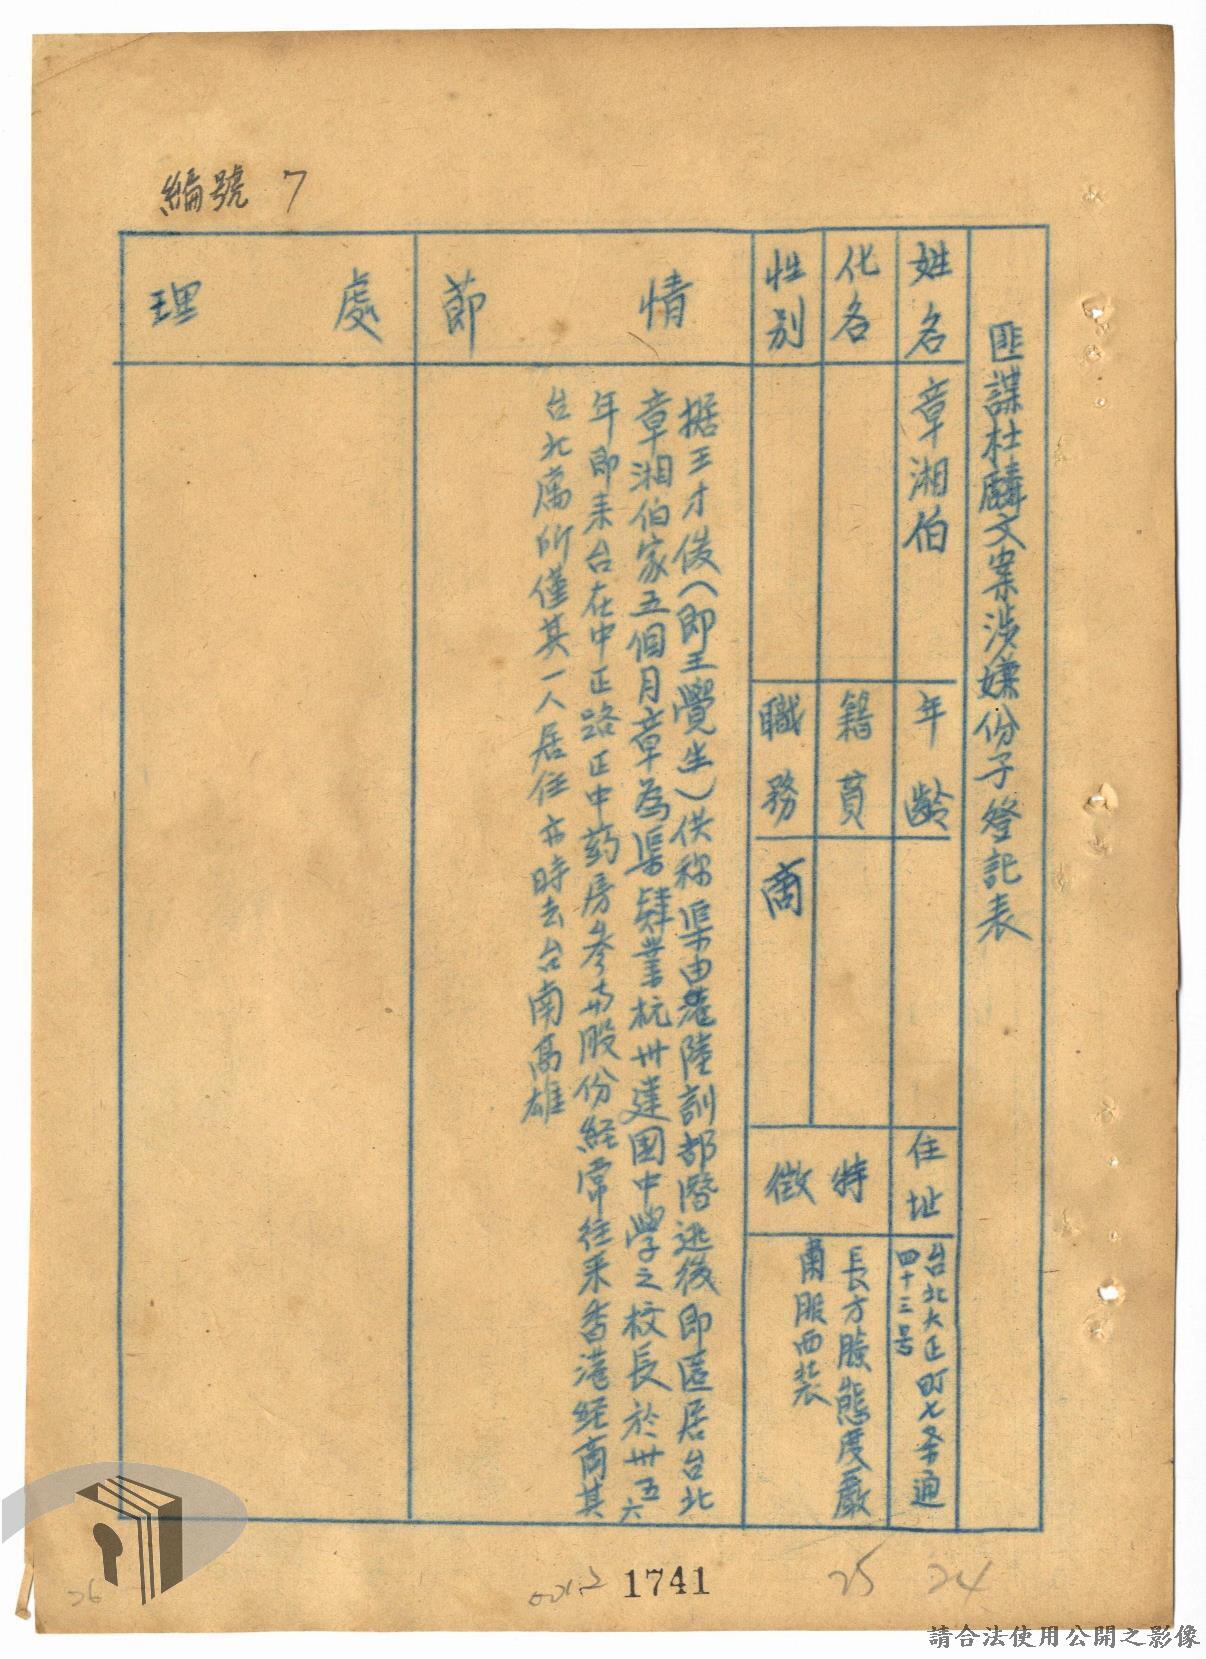 編號 7
匪諜杜麟文案涉嫌份子登記表
姓名
章湘伯
年齡
住址
台北大正町七条通
四十三号
化名
籍貫
特徵
長方臉態度嚴
肅服西裝
性別
職務
商
情節
据王才俊(即王覺生)供称渠由港陸訓部潛逃後即匿居台北
章湘伯家五個月章為渠肄業杭州建国中學之校長於卅五六
年即来台在中正路正中葯房參与股份經常往来香港經商其
台北寓所僅其一人居住亦時去台南高雄
處理
1741
25
24
26
請合法使用公開之影像